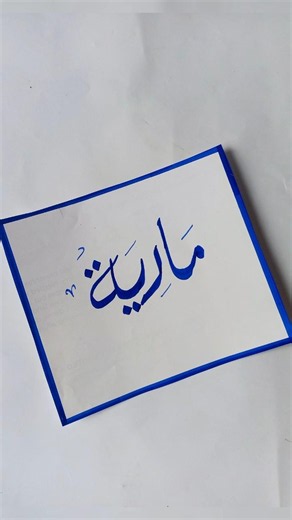 مَارِيَة